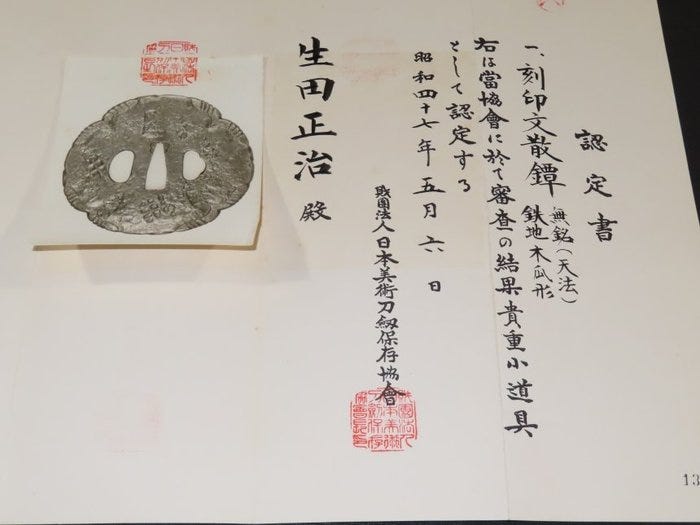 認定書
一、刻印文散鐔 無銘(天法)
鉄地木瓜形
右は當協會に於て審査の結果貴重小道具
として認定する
昭和四十七年五月六日
財團法人日本美術刀剱保存協會
生田正治殿
13